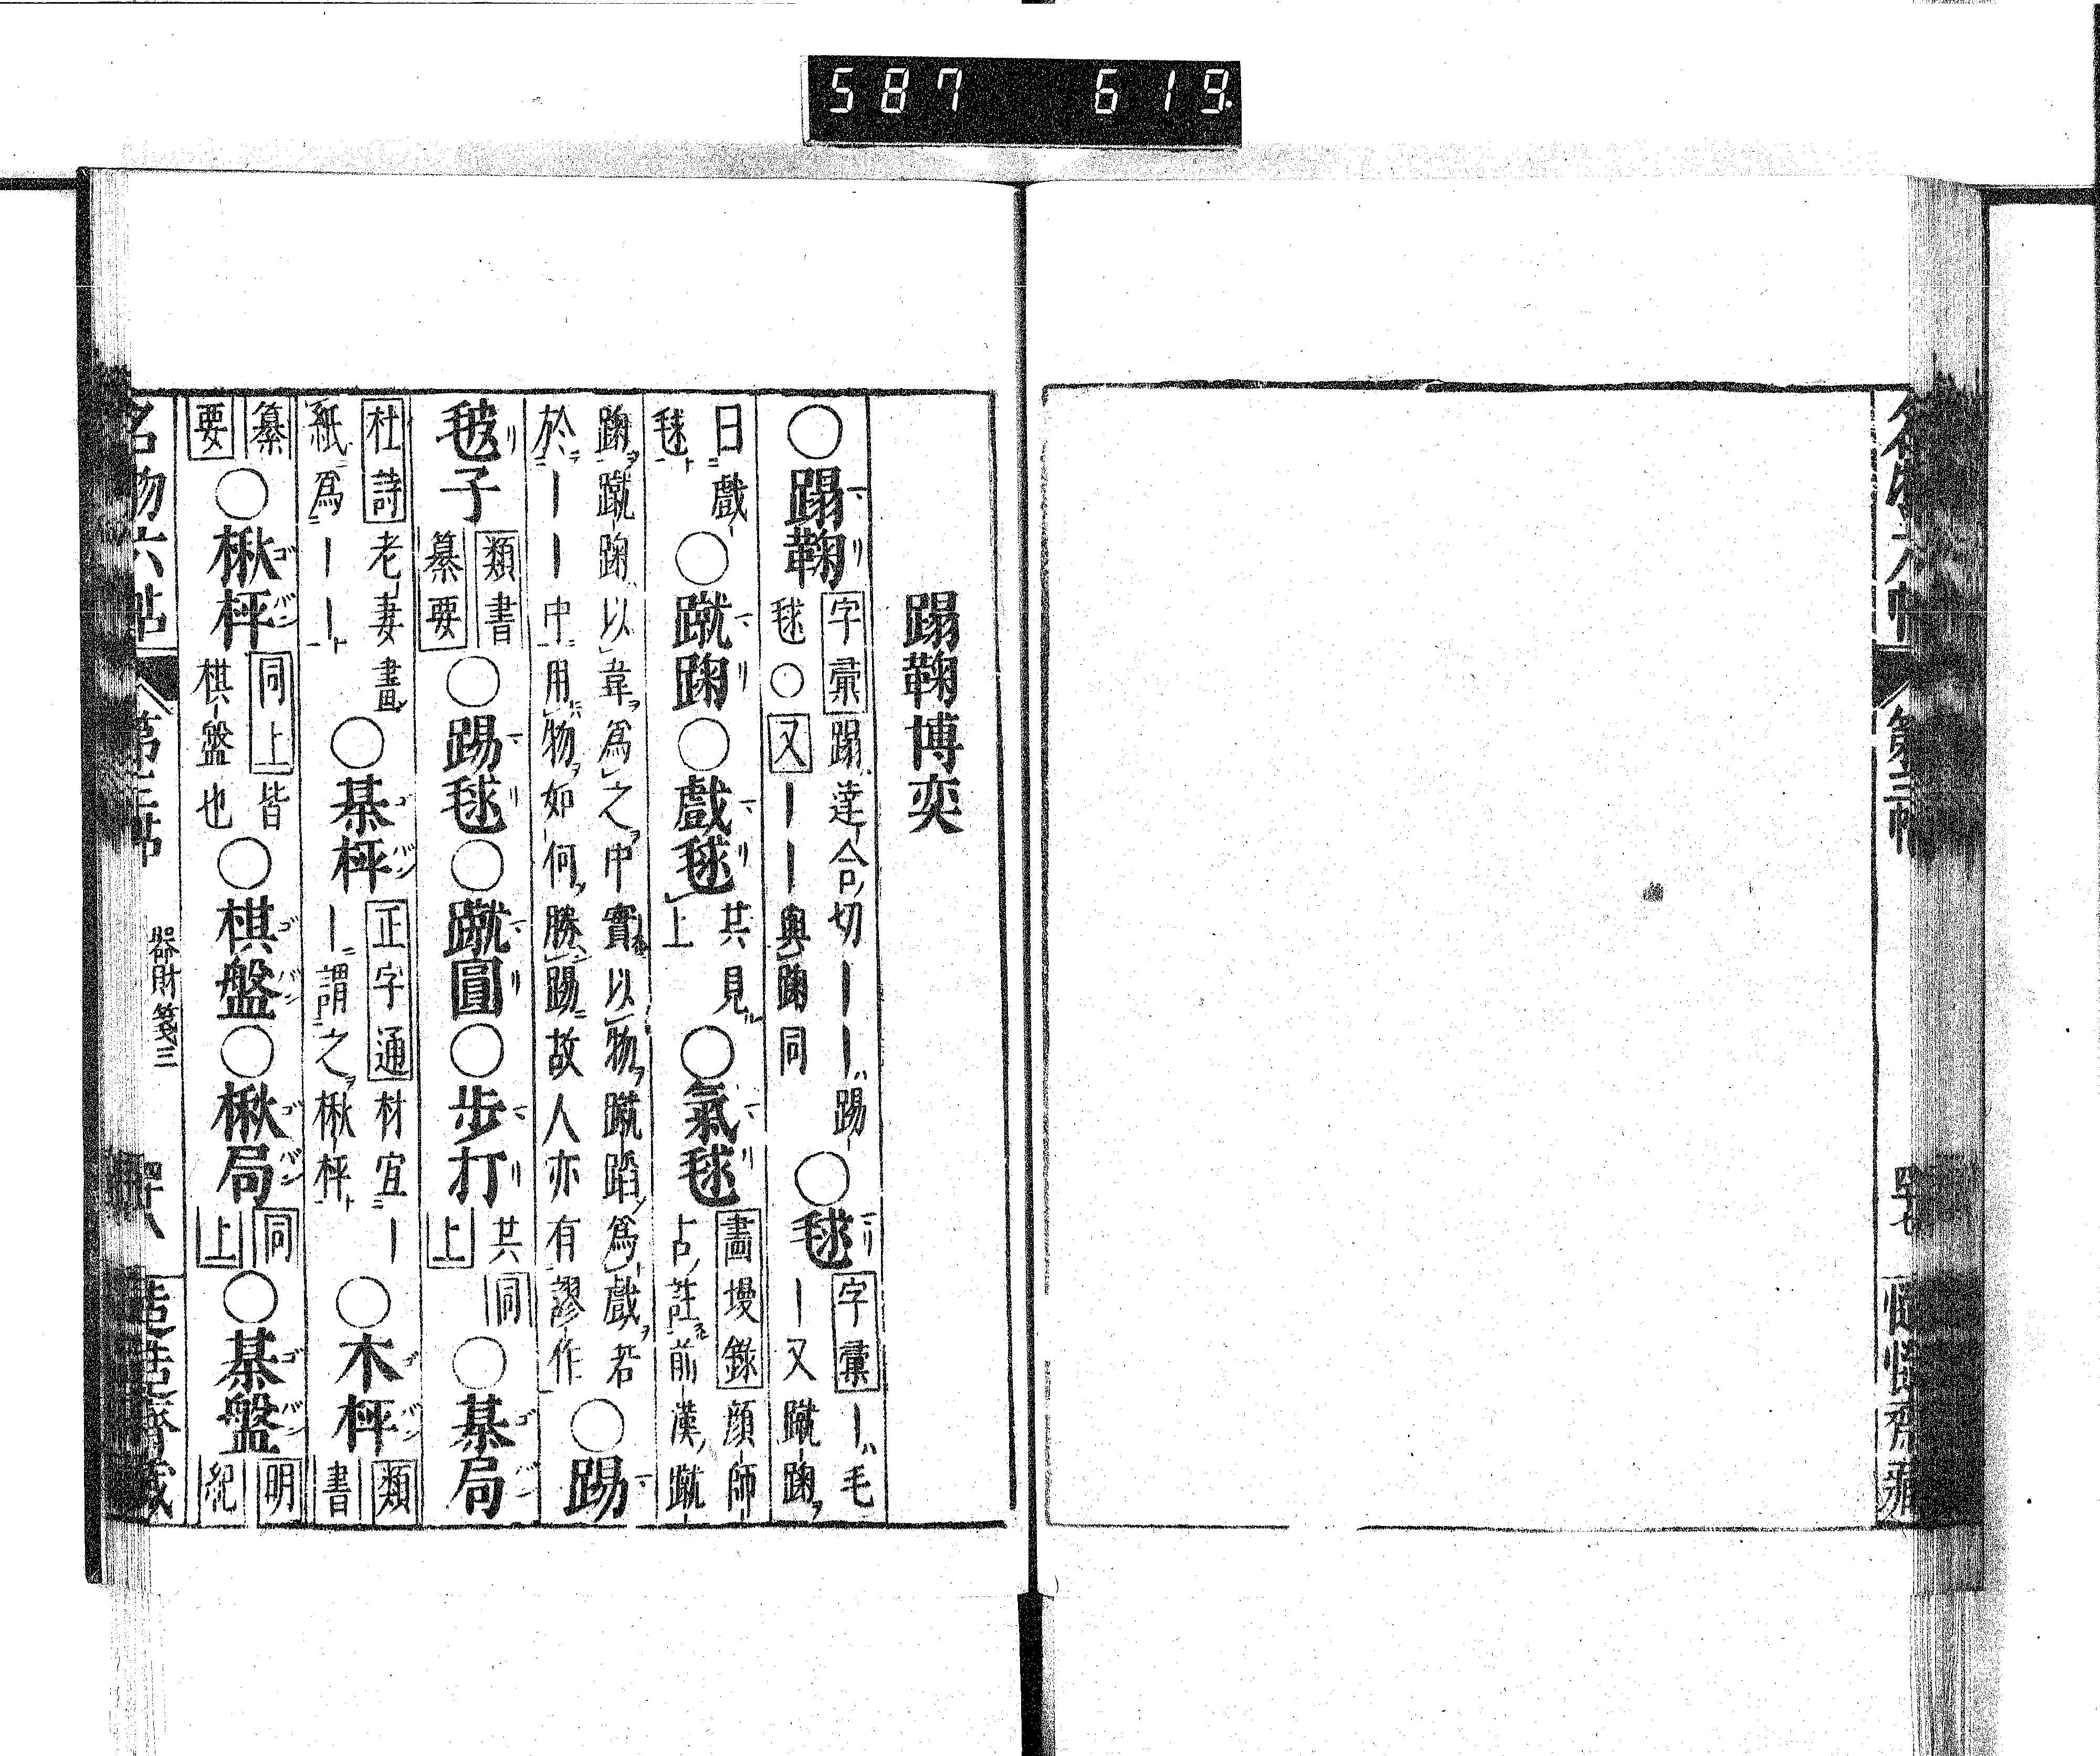 587 619.
蹋鞠博奕
○蹋鞠 字彙 蹋達合切――ハ踢
毬○又――與踘同 ○毬 字彙 ―ハ毛
―又蹴踘ヲ
日戯
毬ト ○蹴踘○戲毬 共見
上 ○氣毬 畵墁錄 顔師
古註前漢蹴
踘ヲ蹴踘以韋爲之中實以物蹴蹈爲戲ヲ若
於――中用物ヲ如何勝踢故人亦有謬作 ○踢
毬子 類書
纂要 ○踢毬○蹴圓○步打 共同
上 ○棊局
杜詩 老妻畫
紙爲――ト ○棊枰 正字通 材宜―
―謂之ヲ楸枰ト ○木枰 類
書
纂
要 ○楸枰 同上 皆
棋盤也 ○棋盤○楸局 同
上 ○棊盤 明
紀
名物六帖 第三帖 器財箋三